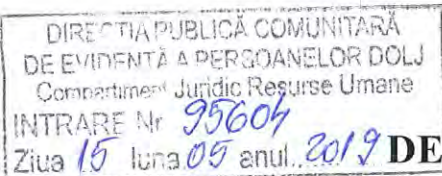 DIRECȚIA PUBLICĂ COMUNITARĂ
DE EVIDENȚĂ A PERSOANELOR DOLJ
Compartiment Juridic Resurse Umane
INTRARE Nr 95604
Ziua 15 luna 05 anul 2019 DE